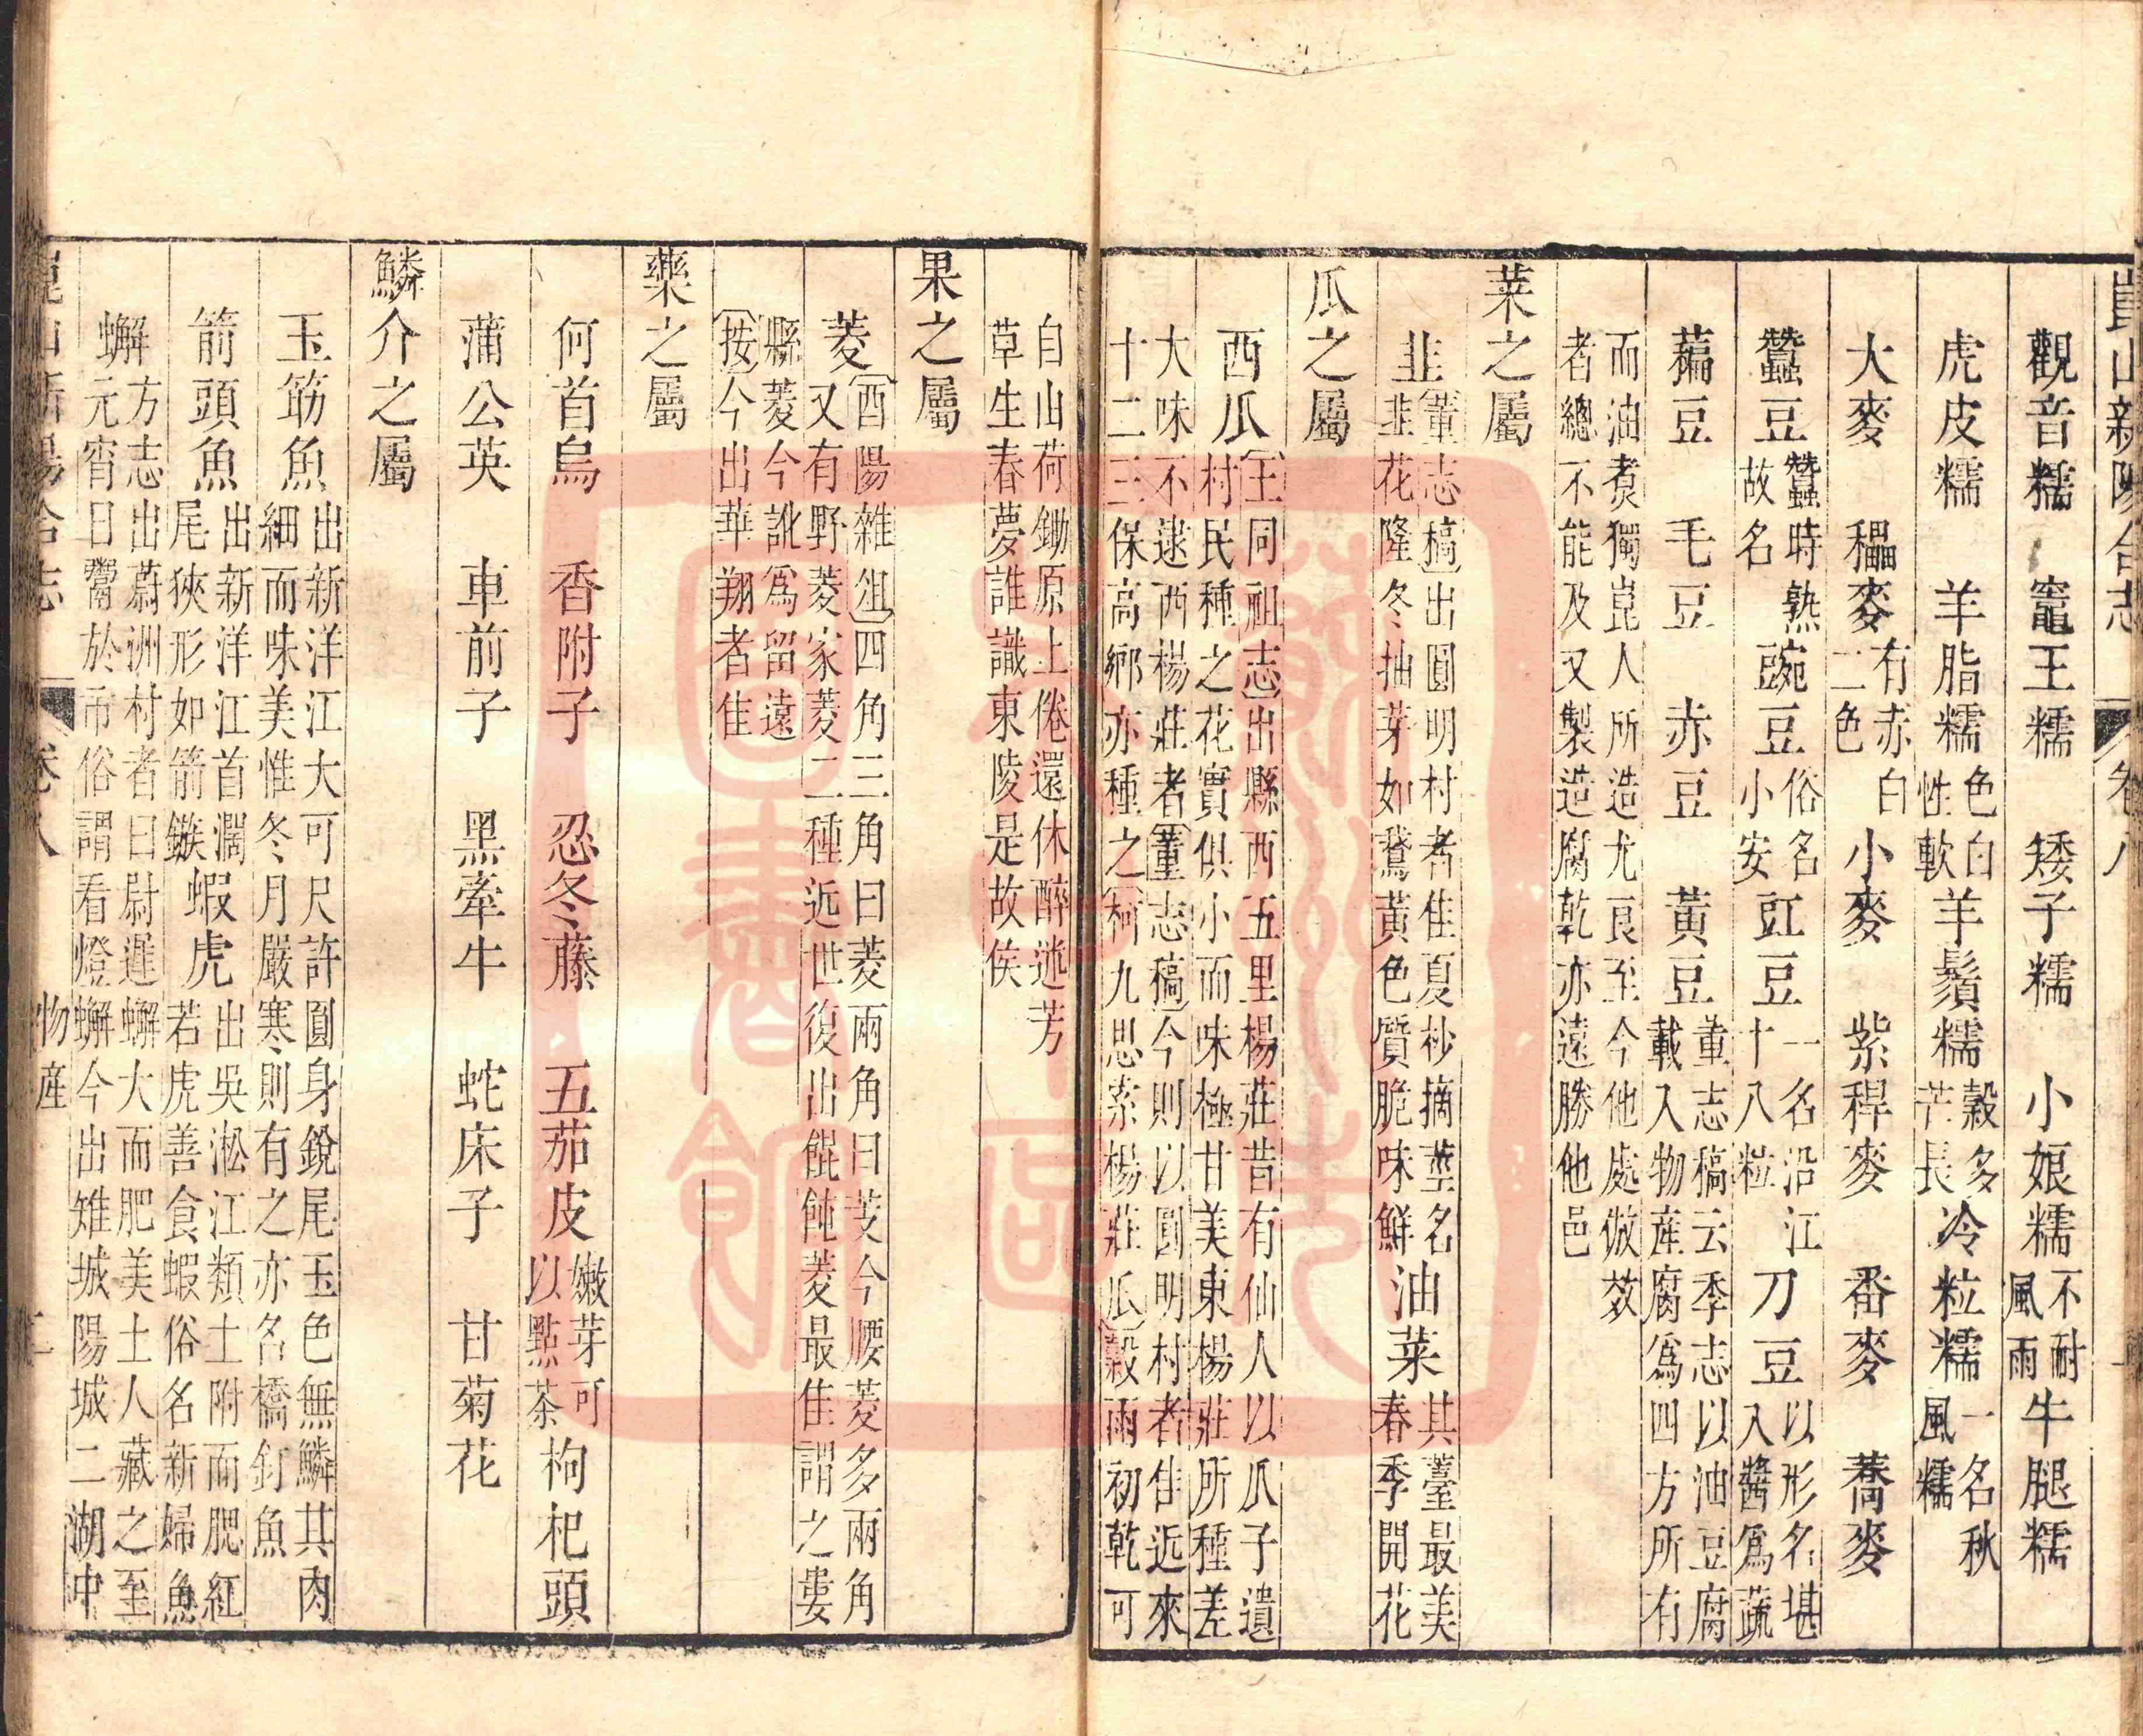 崑山新陽合志 卷八
觀音糯 竈王糯 矮子糯 小娘糯 不耐風雨 牛腿糯
虎皮糯 羊脂糯 色白性軟 羊鬚糯 穀多芒長 冷粒糯 一名秋風糯
大麥 穬麥 有赤白二色 小麥 紫稈麥 番麥 蕎麥
蠶豆 蠶時熟故名 豌豆 俗名小安 豇豆 一名沿江十八粒 刀豆 以形名堪入醬爲蔬
藊豆 毛豆 赤豆 黃豆 董志稿云季志以油豆腐載入物産腐爲四方所有
而油煑獨崑人所造尤良至今他處倣效
者總不能及又製造腐乾亦遠勝他邑
菜之屬
韭 董志稿出圓明村者佳夏杪摘莖名韭花隆冬抽芽如鵞黃色質脆味鮮 油菜 其薹最美春季開花
瓜之屬
西瓜 王同祖志出縣西西五里楊莊昔有仙人以瓜子遺
村民種之花實俱小而味極甘美東楊莊所種差
大味不逮西楊莊者董志稿今則以圓明村者佳近來
十二三保高鄉亦種之柯九思索楊莊瓜穀雨初乾可
自山荷鋤原上倦還休醉逃芳
草生春夢誰識東陵是故侯
果之屬
菱 酉陽雜俎四角三角曰菱兩角曰芰今腰菱多兩角
又有野菱家菱二種近世復出餛飩菱最佳謂之婁
縣菱今訛爲留遠
按今出華翔者佳
藥之屬
何首烏 香附子 忍冬藤 五茄皮 嫩芽可以點茶 枸杞頭
蒲公英 車前子 黑牽牛 蛇床子 甘菊花
鱗介之屬
玉筯魚 出新洋江大可尺許圓身銳尾玉色無鱗其肉
細而味美惟冬月嚴寒則有之亦名橋釘魚
箭頭魚 出新洋江首濶尾狹形如箭鏃 蝦虎 出吳淞江類土附而腮紅若虎善食蝦俗名新婦魚
蠏 方志出蔚洲村者曰尉遲蠏大而肥美土人藏之至
元宵日鬻於市俗謂看燈蠏今出雉城陽城二湖中
崑山新陽合志 卷八 物産 二